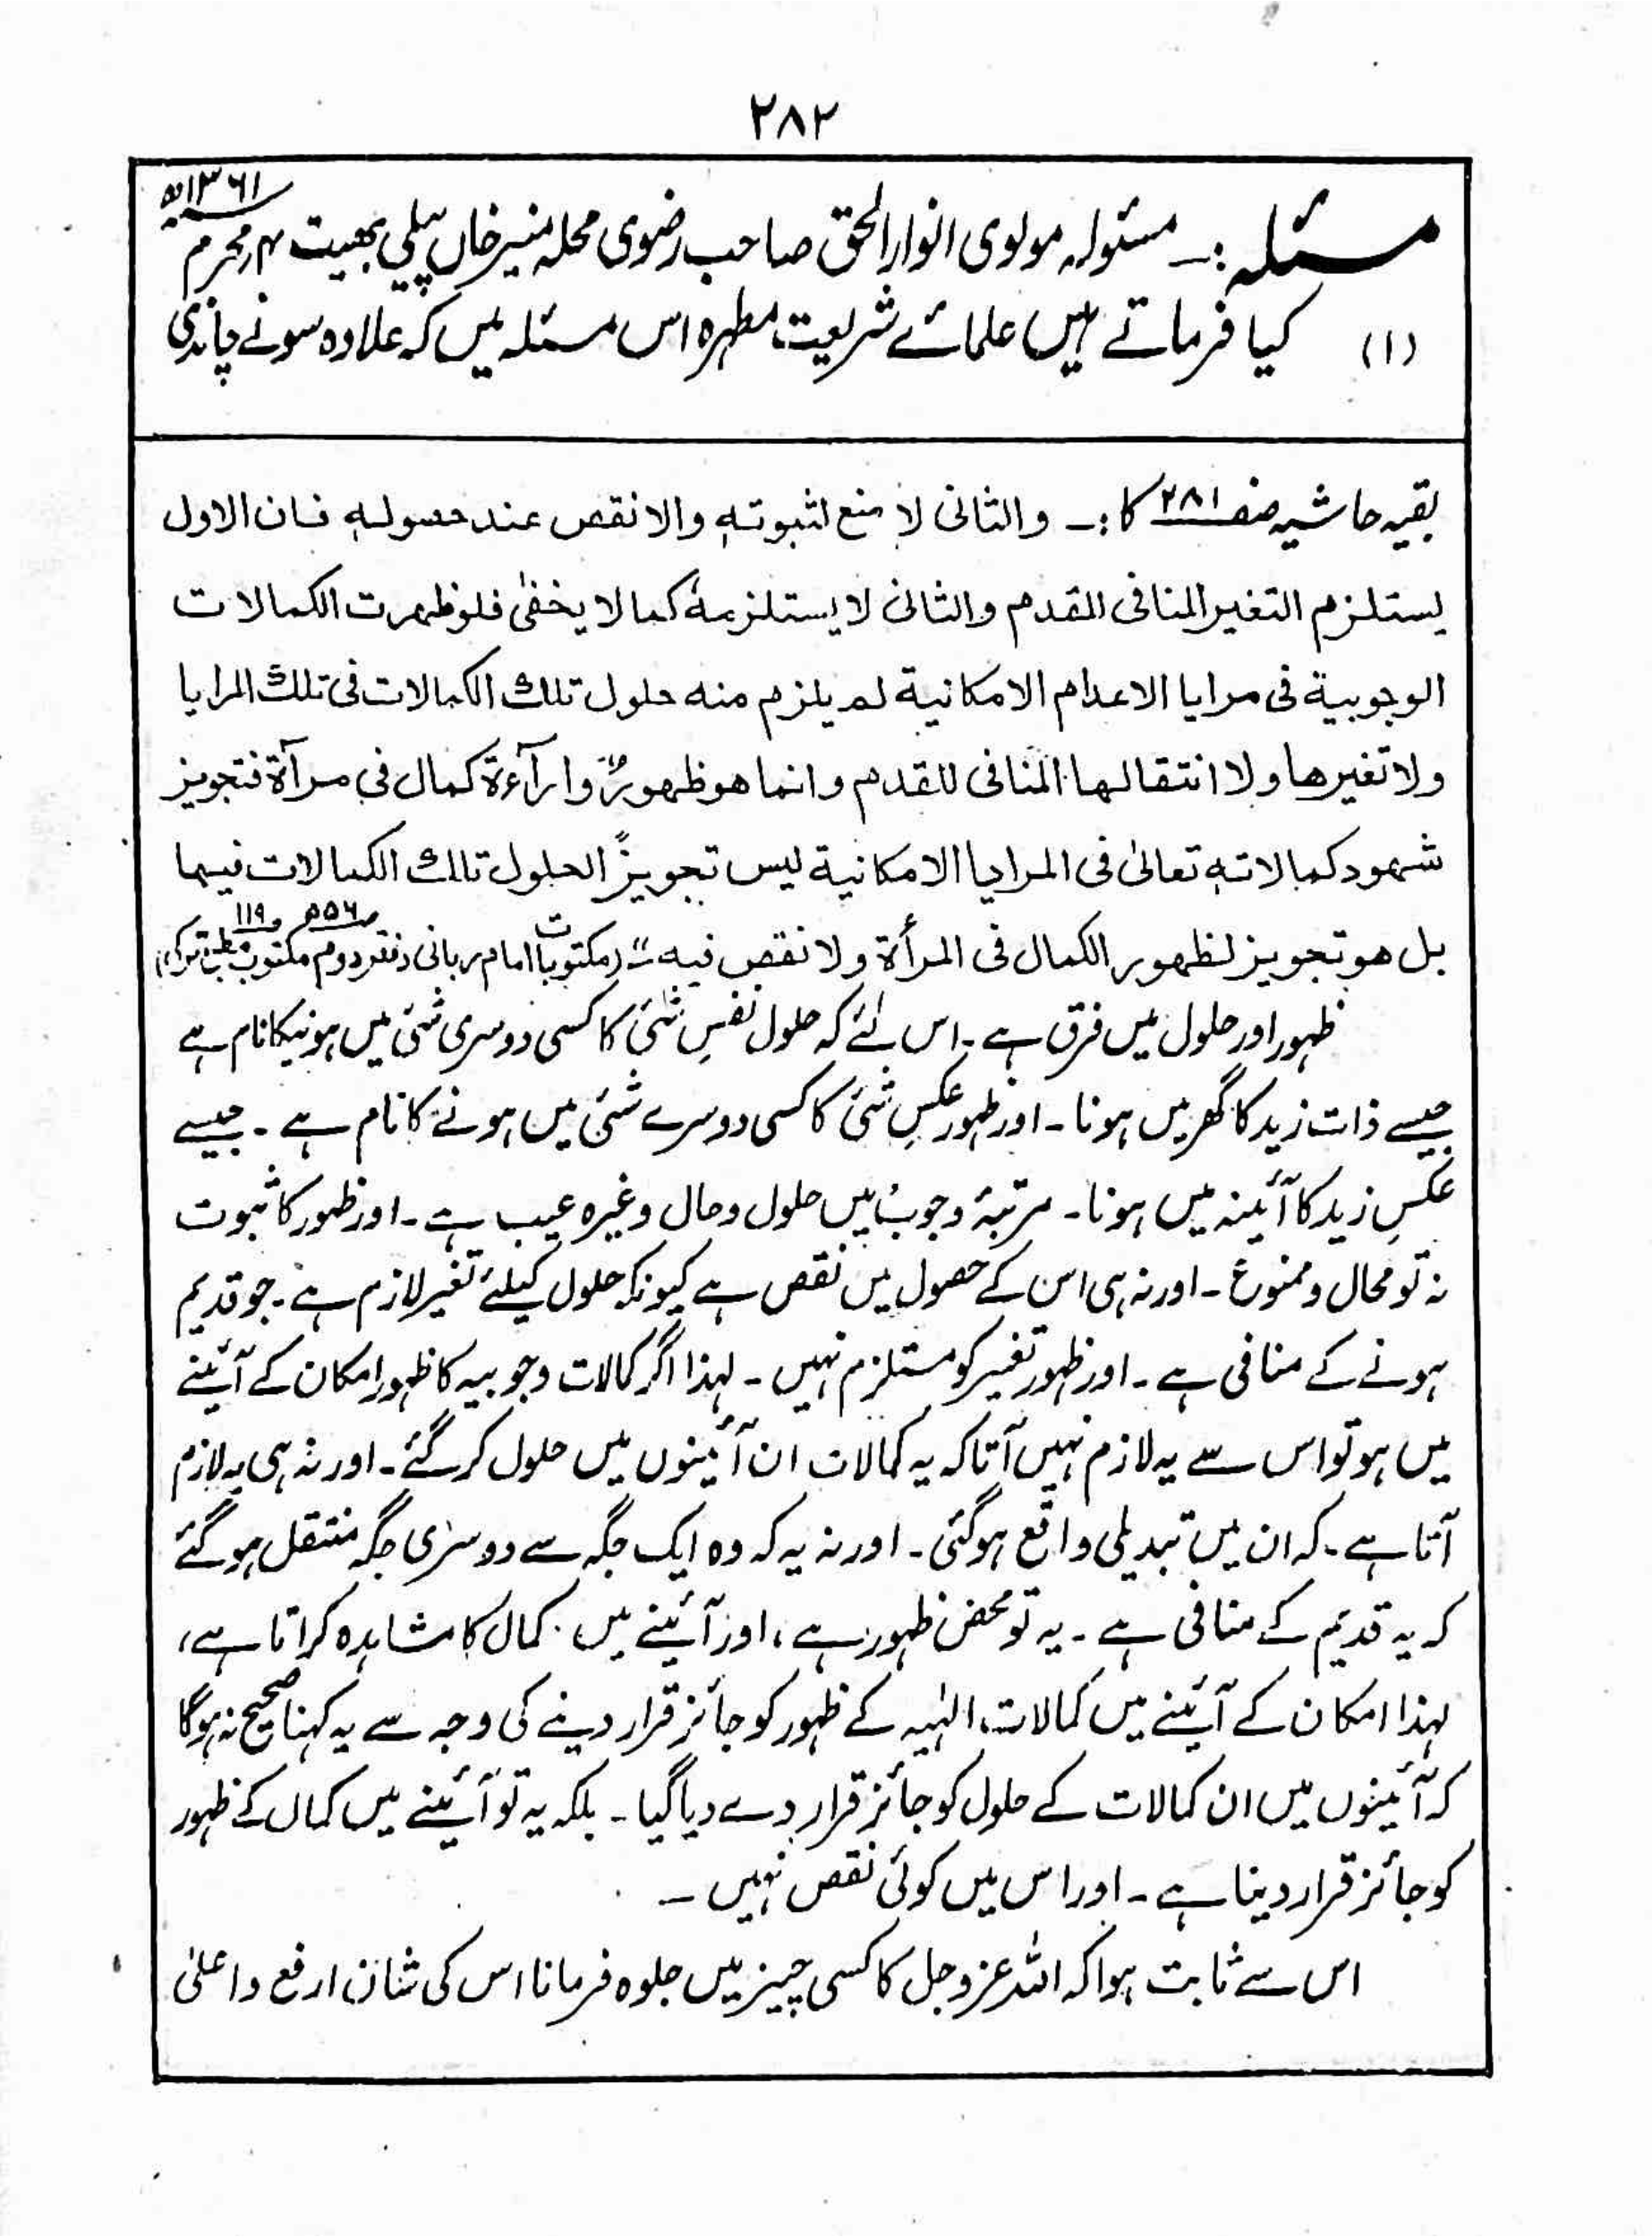 ۲۸۲
۱۳۶۱ھ
مسئلہ :۔ مسئولہ مولوی انوار الحق صاحب رضوی محلہ منیر خاں پیلی بھیت ۴؍ محرم
(۱) کیا فرماتے ہیں علمائے شریعت مطہرہ اس مسئلہ میں کہ علاوہ سونے چاندی
بقیہ حاشیہ صفہ ۲۸۱ کا :۔ والثانی لا منع لثبوتہ والا نقص عند حصولہ فان الاول
یستلزم التغیر المنافی القدم والثانی لا یستلزمہ کما لا یخفیٰ فلو ظھرت الکمالات
الوجوبیة فی مرایا الاعدام الامکانیة لم یلزم منہ حلول تلک الکمالات فی تلک المرایا
ولا تغیرھا ولا انتقالھا المنافی للقدم وانما ھو ظھورٌ وارآءۃ کمال فی مرآۃ فتجویز
شھود کمالاتہ تعالیٰ فی المرایا الامکانیة لیس تجویزًا لحلول تلک الکمالات فیھا
بل ھو تجویز لظھور الکمال فی المرأۃ ولا نقص فیہ“ (مکتوبات امام ربانی دفتر دوم مکتوب ص۵۵۶ و ۱۱۹ طبع ترکی)
ظہور اور حلول میں فرق ہے ۔ اس لئے کہ حلول نفسِ شئی کا کسی دوسری شئی میں ہونیکا نام ہے
جیسے ذات زید کا گھر میں ہونا ۔ اور ظہور عکسِ شئی کا کسی دوسرے شئی میں ہونے کا نام ہے ۔ جیسے
عکسِ زید کا آئینہ میں ہونا ۔ مرتبۂ وجوب میں حلول و حال وغیرہ عیب ہے ۔ اور ظہور کا ثبوت
نہ تو محال و ممنوع ۔ اور نہ ہی اس کے حصول میں نقص ہے کیونکہ حلول کیلئے تغیر لازم ہے ۔ جو قدیم
ہونے کے منافی ہے ۔ اور ظہور تغیر کو مستلزم نہیں ۔ لہذا اگر کمالات وجوبیہ کا ظہور امکان کے آئینے
میں ہو تو اس سے یہ لازم نہیں آتا کہ یہ کمالات ان آئینوں میں حلول کر گئے ۔ اور نہ ہی یہ لازم
آتا ہے ۔ کہ ان میں تبدیلی واقع ہوگئی ۔ اور نہ یہ کہ وہ ایک جگہ سے دوسری جگہ منتقل ہو گئے
کہ یہ قدیم کے منافی ہے ۔ یہ تو محض ظہور ہے ، اور آئینے میں کمال کا مشاہدہ کراتا ہے ،
لہذا امکان کے آئینے میں کمالات الٰہیہ کے ظہور کو جائز قرار دینے کی وجہ سے یہ کہنا صحیح نہ ہوگا
کہ آئینوں میں ان کمالات کے حلول کو جائز قرار دے دیا گیا ۔ بلکہ یہ تو آئینے میں کمال کے ظہور
کو جائز قرار دینا ہے ۔ اور اس میں کوئی نقص نہیں ۔
اس سے ثابت ہوا کہ اللہ عزوجل کا کسی چیز میں جلوہ فرمانا اس کی شان ارفع واعلیٰ